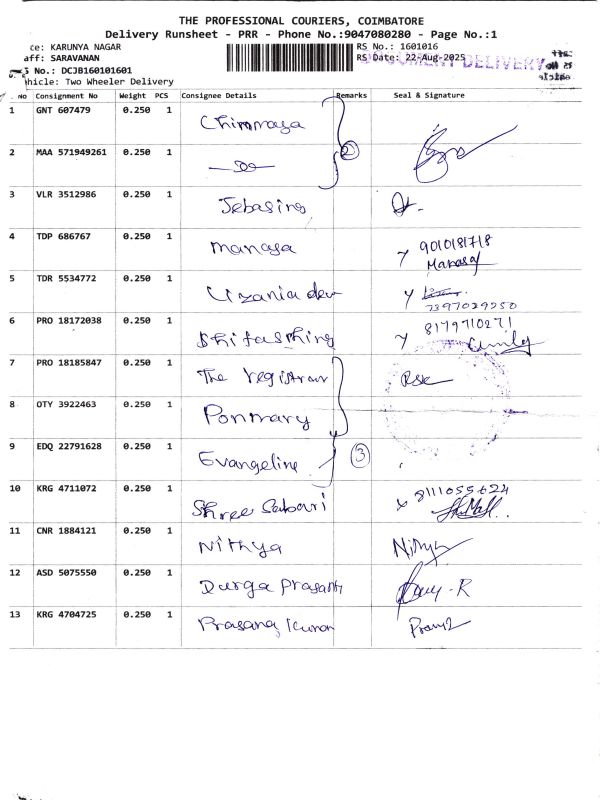 THE PROFESSIONAL COURIERS, COIMBATORE
Delivery Runsheet - PRR - Phone No.:9047080280 - Page No.:1
ce: KARUNYA NAGAR
RS No.: 1601016
aff: SARAVANAN
RS Date: 22-Aug-2025
DOCUMENT DELIVERY
S No.: DCJB160101601
hicle: Two Wheeler Delivery
No Consignment No Weight PCS Consignee Details Remarks Seal & Signature
1 GNT 607479 0.250 1 Chinmaya
2 MAA 571949261 0.250 1 2
3 VLR 3512986 0.250 1 Jebasing
4 TDP 686767 0.250 1 manasa 9010181718
Manasa
5 TDR 5534772 0.250 1 Uzania devi
7397029250
6 PRO 18172038 0.250 1 8179710271
7 PRO 18185847 0.250 1 The registrar
8 OTY 3922463 0.250 1 Ponmary
9 EDQ 22791628 0.250 1 Evangeline 3
10 KRG 4711072 0.250 1 Shree Sabari 8111055624
11 CNR 1884121 0.250 1 Nithya Nithya
12 ASD 5075550 0.250 1 Durga Prasanth
13 KRG 4704725 0.250 1 Prasana Kumar